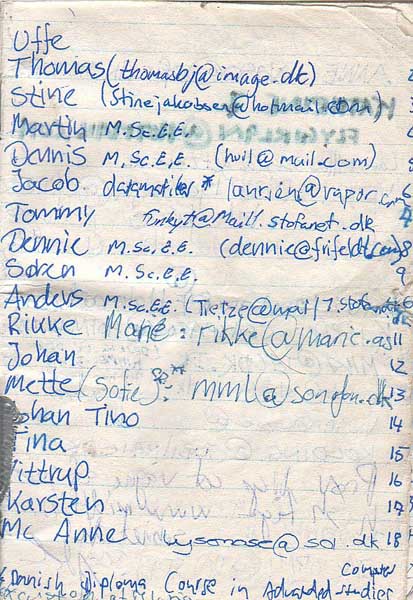 Uffe
Thomas (thomasbj@image.dk)
Stine (Stinejakobsen@hotmail.com)
Martin M.Sc.E.E.
Dennis M.Sc.E.E. (hvil@mail.com)
Jacob datamatiker * laurien@vapor.com 6
Tommy funkyt@mail1.stofanet.dk
Dennie M.Sc.E.E. (dennie@frifeldt.com) 8
Søren M.Sc.E.E. 9
Anders M.Sc.E.E. (Tietze@mail17.stofanet.dk
Rikke Marie : rikke@maric.as 11
Johan 12
Mette (Sofie) : mml@sonofon.dk 13
Johan Tino 14
Tina 15
Vittrup 16
Karsten 17
Mc Anne @sol.dk 18
Computer
Danish Diploma Course in Advanced studies